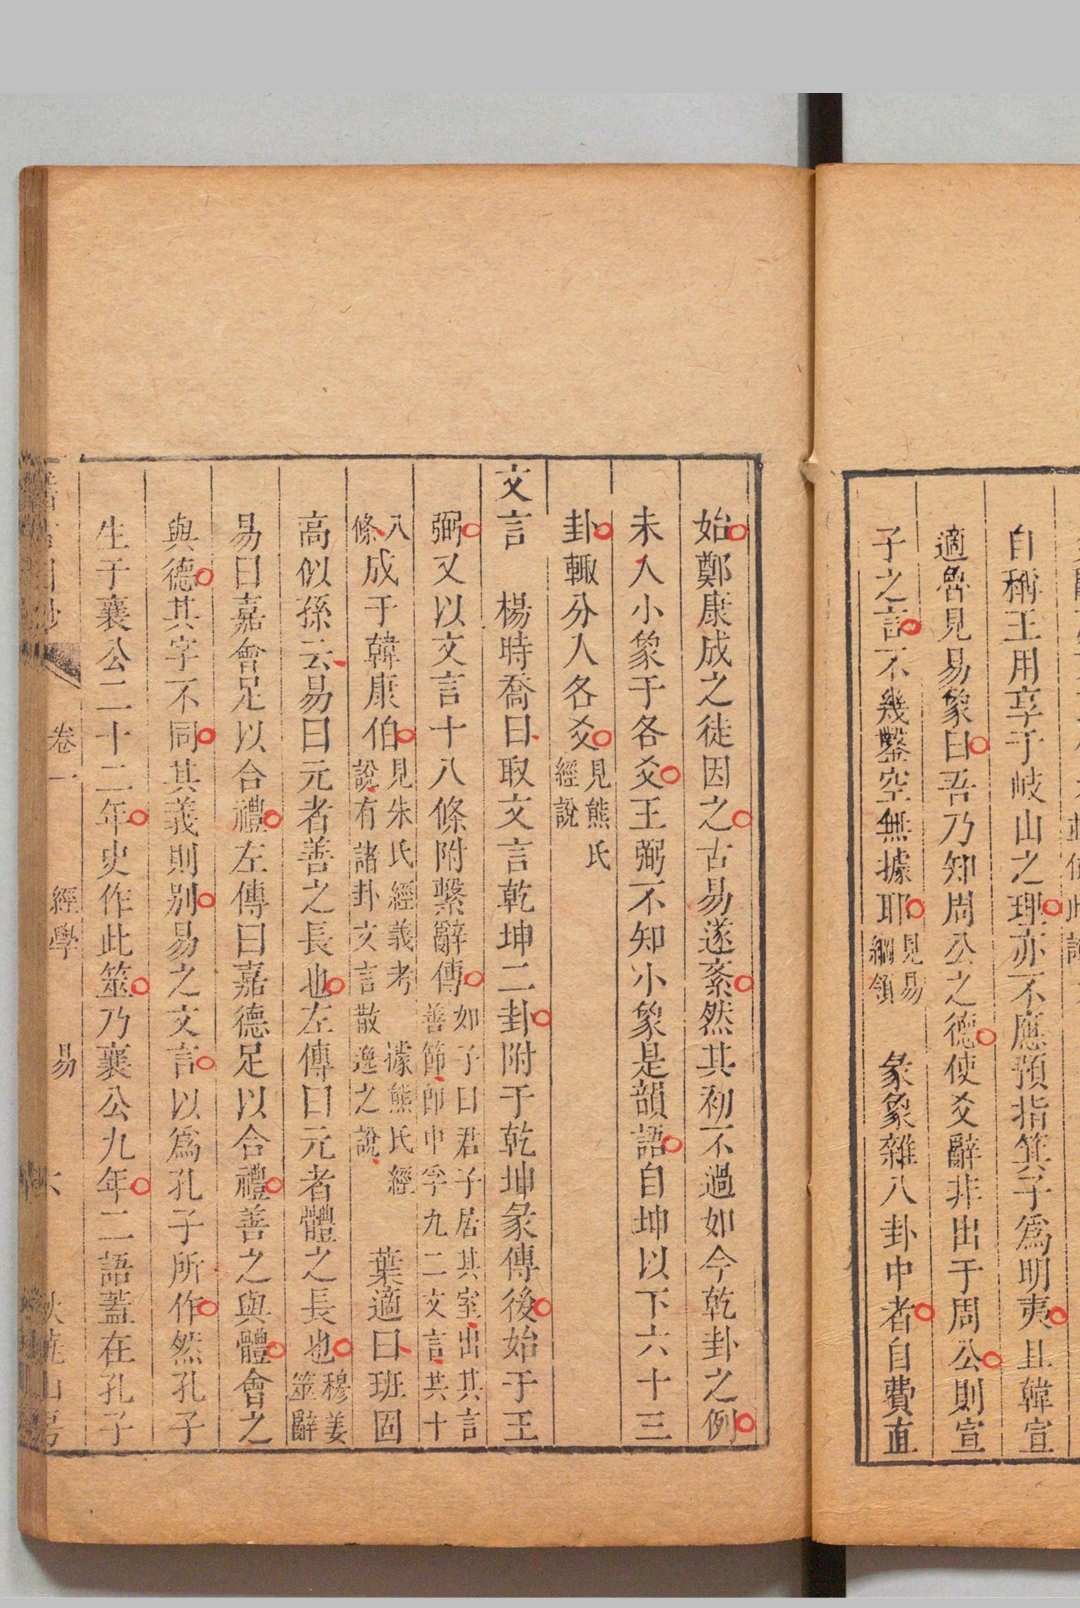 自稱王用享于岐山之理亦不應預指箕子爲明夷且韓宣
適魯見易象曰吾乃知周公之德使爻辭非出于周公則宣
子之言不幾鑿空無據耶見易綱領 彖象雜八卦中者自費直
始鄭康成之徒因之古易遂紊然其初不過如今乾卦之例
未入小象于各爻王弼不知小象是韻語自坤以下六十三
卦輙分入各爻見熊氏經說
文言 楊時喬曰取文言乾坤二卦附于乾坤彖傳後始于王
弼又以文言十八條附繫辭傳如子曰君子居其室出其言善節卽中孚九二文言其十
八條成于韓康伯見朱氏經義考說有諸卦文言散逸之說據熊氏經 葉適曰班固
高似孫云易曰元者善之長也左傳曰元者體之長也穆姜筮辭
易曰嘉會足以合禮左傳曰嘉德足以合禮善之與體會之
與德其字不同其義則别易之文言以爲孔子所作然孔子
生于襄公二十二年史作此筮乃襄公九年二語蓋在孔子
卷一 經學 易 六